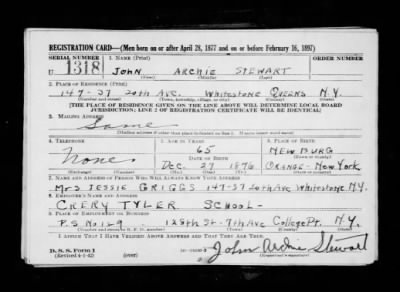 REGISTRATION CARD—(Men born on or after April 28, 1877 and on or before February 16, 1897)
SERIAL NUMBER 1. NAME (Print) ORDER NUMBER
U 1318 JOHN ARCHIE STEWART
(First) (Middle) (Last)
2. PLACE OF RESIDENCE (Print)
147-37 20th AVE. Whitestone QUEENS N.Y.
(Number and street) (Town, township, village, or city) (County) (State)
[THE PLACE OF RESIDENCE GIVEN ON THE LINE ABOVE WILL DETERMINE LOCAL BOARD
JURISDICTION; LINE 2 OF REGISTRATION CERTIFICATE WILL BE IDENTICAL]
3. MAILING ADDRESS
Same
[Mailing address if other than place indicated on line 2. If same insert word same]
4. TELEPHONE 5. AGE IN YEARS 6. PLACE OF BIRTH
65 NEWBURG
None DATE OF BIRTH
Dec 27 1876 ORANGE - New York
(Exchange) (Number) (Mo.) (Day) (Yr.) (State or country)
7. NAME AND ADDRESS OF PERSON WHO WILL ALWAYS KNOW YOUR ADDRESS
MRS JESSIE GRIGGS 147-37 20th AVE Whitestone N.Y.
8. EMPLOYER'S NAME AND ADDRESS
TYLER SCHOOL-
9. PLACE OF EMPLOYMENT OR BUSINESS
P.S. No 129 128th St - 7th AVE College Pt. N.Y.
(Number and street or R. F. D. number) (Town) (County) (State)
I AFFIRM THAT I HAVE VERIFIED ABOVE ANSWERS AND THAT THEY ARE TRUE.
D. S. S. Form 1
(Revised 4-1-42) (over) John Archie Stewart